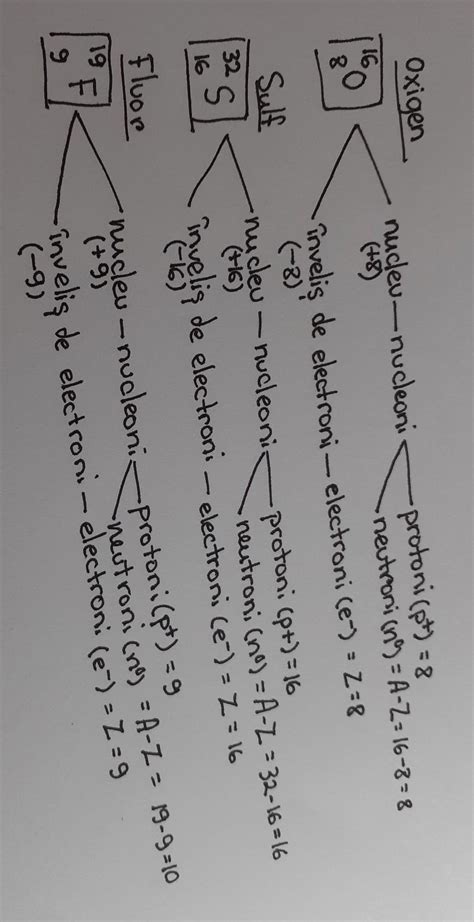 Oxigen
16 8 O nucleu (+8) — nucleoni protoni (p+) = 8
neutroni (n⁰) = A-Z = 16-8 = 8
înveliş de electroni — electroni (e⁻) = Z = 8
(-8)
Sulf
32 16 S nucleu (+16) — nucleoni protoni (p+) = 16
neutroni (n⁰) = A-Z = 32-16 = 16
înveliş de electroni — electroni (e⁻) = Z = 16
(-16)
Fluor
19 9 F nucleu (+9) — nucleoni protoni (p+) = 9
neutroni (n⁰) = A-Z = 19-9 = 10
înveliş de electroni — electroni (e⁻) = Z = 9
(-9)